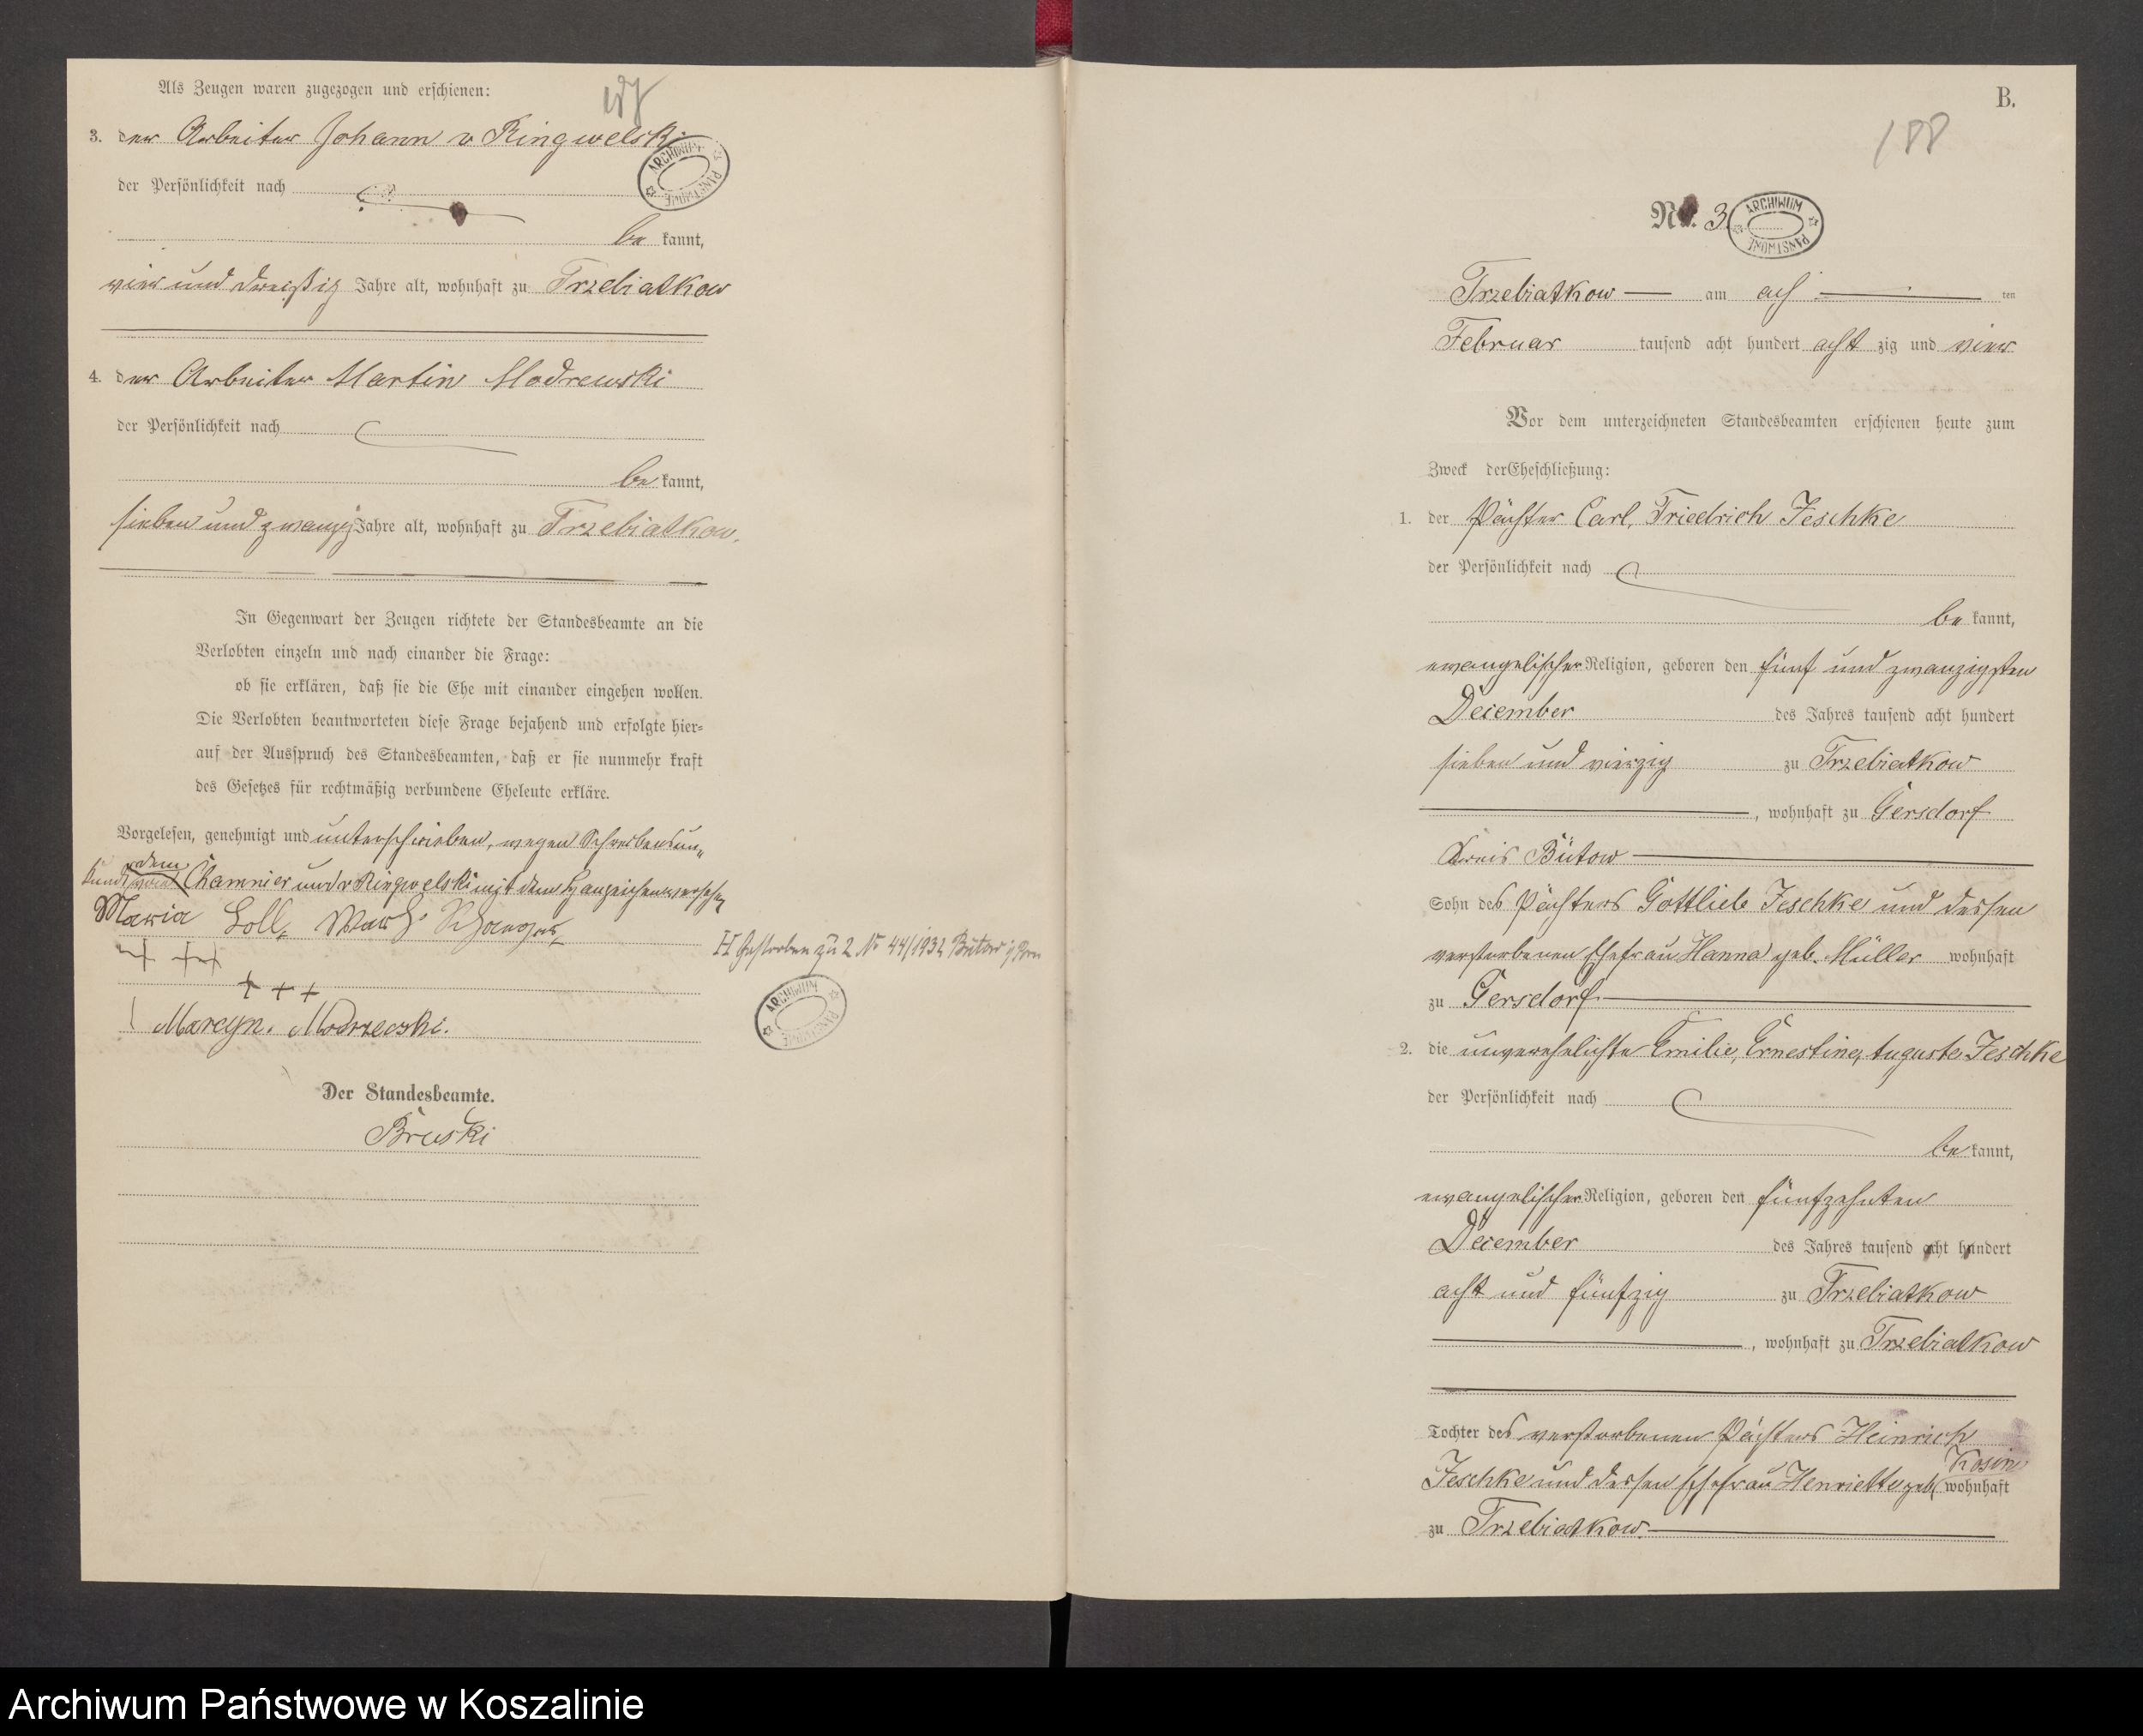 187
Als Zeugen waren zugezogen und erschienen:
3. der Arbeiter Johann v Ringwelski
ARCHIWUM PAŃSTWOWE
der Persönlichkeit nach
be kannt,
vier und dreißig Jahre alt, wohnhaft zu Trzebiatkow
4. der Arbeiter Martin Modrewski
der Persönlichkeit nach
be kannt,
sieben und zwanzig Jahre alt, wohnhaft zu Trzebiatkow.
In Gegenwart der Zeugen richtete der Standesbeamte an die
Verlobten einzeln und nach einander die Frage:
ob sie erklären, daß sie die Ehe mit einander eingehen wollen.
Die Verlobten beantworteten diese Frage bejahend und erfolgte hier=
auf der Ausspruch des Standesbeamten, daß er sie nunmehr kraft
des Gesetzes für rechtmäßig verbundene Eheleute erkläre.
Vorgelesen, genehmigt und unterschrieben, wegen Schreibensun„
kunde von dem Chamnier und v Ringwelski mit dem Handzeichen versehen
Maria Loll,
+ + +
+ + +
Marcyn. Modrzewski.
H Gestorben zu 2 Nr 44/1932 Bütow i/Pom
ARCHIWUM PAŃSTWOWE
Der Standesbeamte.
Bruski
B.
188
Nr. 3.
ARCHIWUM PAŃSTWOWE
Trzebiatkow am acht ten
Februar tausend acht hundert acht zig und vier
Vor dem unterzeichneten Standesbeamten erschienen heute zum
Zweck der Eheschließung:
1. der Pächter Carl, Friedrich Jeschke
der Persönlichkeit nach
be kannt,
evangelischer Religion, geboren den fünf und zwanzigsten
December des Jahres tausend acht hundert
sieben und vierzig zu Trzebiatkow
, wohnhaft zu Gersdorf
Kreis Bütow
Sohn des Pächters Gottlieb Jeschke und dessen
verstorbenen Ehefrau Hanna geb. Müller wohnhaft
zu Gersdorf
2. die unverehelichte Emilie, Ernestine, Auguste Jeschke
der Persönlichkeit nach
be kannt,
evangelischer Religion, geboren den fünfzehnten
December des Jahres tausend acht hundert
acht und fünfzig zu Trzebiatkow
, wohnhaft zu Trzebiatkow
Tochter des verstorbenen Pächters Heinrich
Jeschke und dessen Ehefrau Henriette geb. Kosin wohnhaft
zu Trzebiatkow.
Archiwum Państwowe w Koszalinie